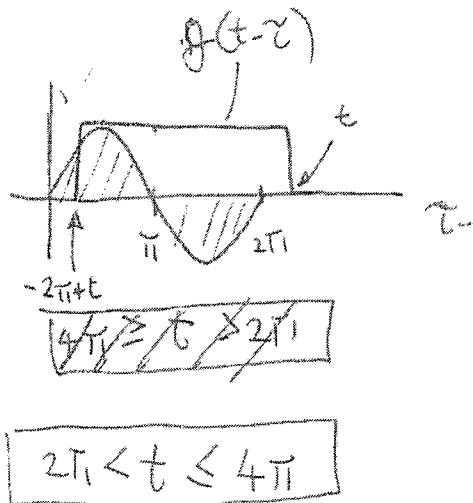 g(t-τ)
t
π
2π
τ
-2π+t
4π ≥ t > 2π
2π < t ≤ 4π